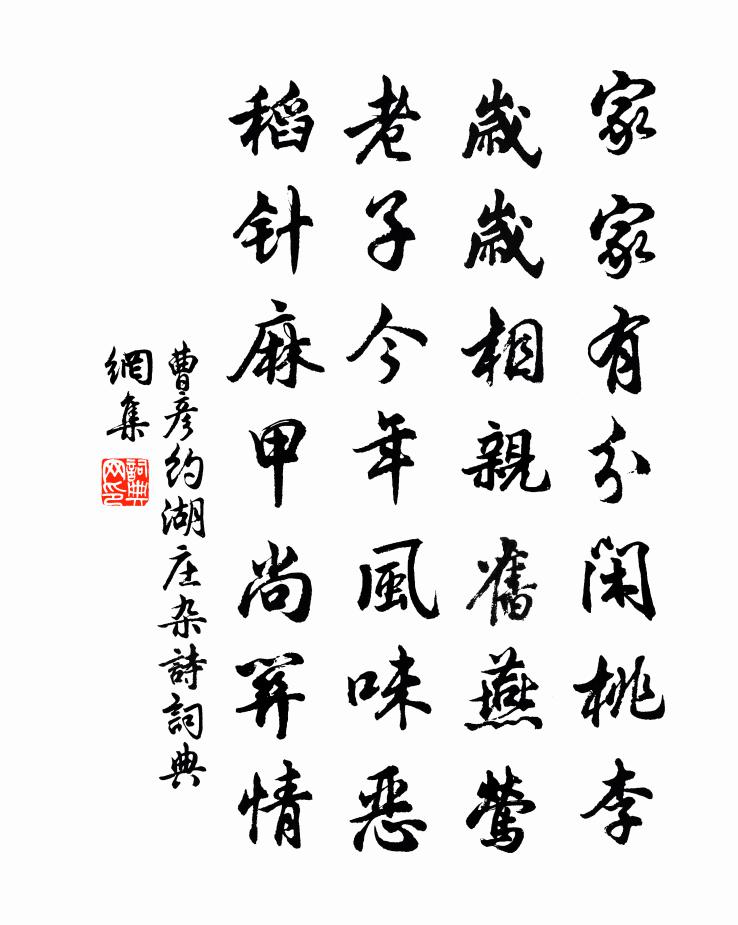 家家有分閑桃李
歲歲相親舊燕鶯
老子今年風味惡
稻针麻甲尚關情
曹彥約湖庄杂詩詞典
網集
詞典
网印